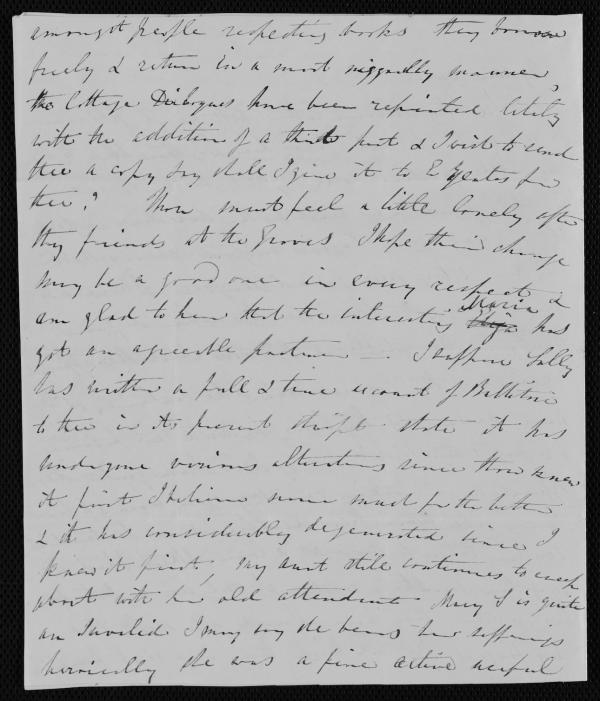 amongst people respecting books they borrow
freely & return in a most niggardly manner,
the Cottage Dialogues have been reprinted lately
with the addition of a third part & I wish to send
thee a copy say shall I give it to E Yeates for
thee? Thou must feel a little lonely after
thy friends at the Groves I hope their change
may be a good one in every respect &
am glad to hear that the interesting Maria has
got an agreeable partner —. I suppose Sally
has written a full & true account of Ballitore
to thee in its present state it has
undergone various alterations since thou knew
it first I believe none much for the better
& it has considerably degenerated since I
knew it first, my aunt still continues to creep
about with her old attendant Mary S is quite
an Invalid I may say she bears her sufferings
heroically she was a fine active useful